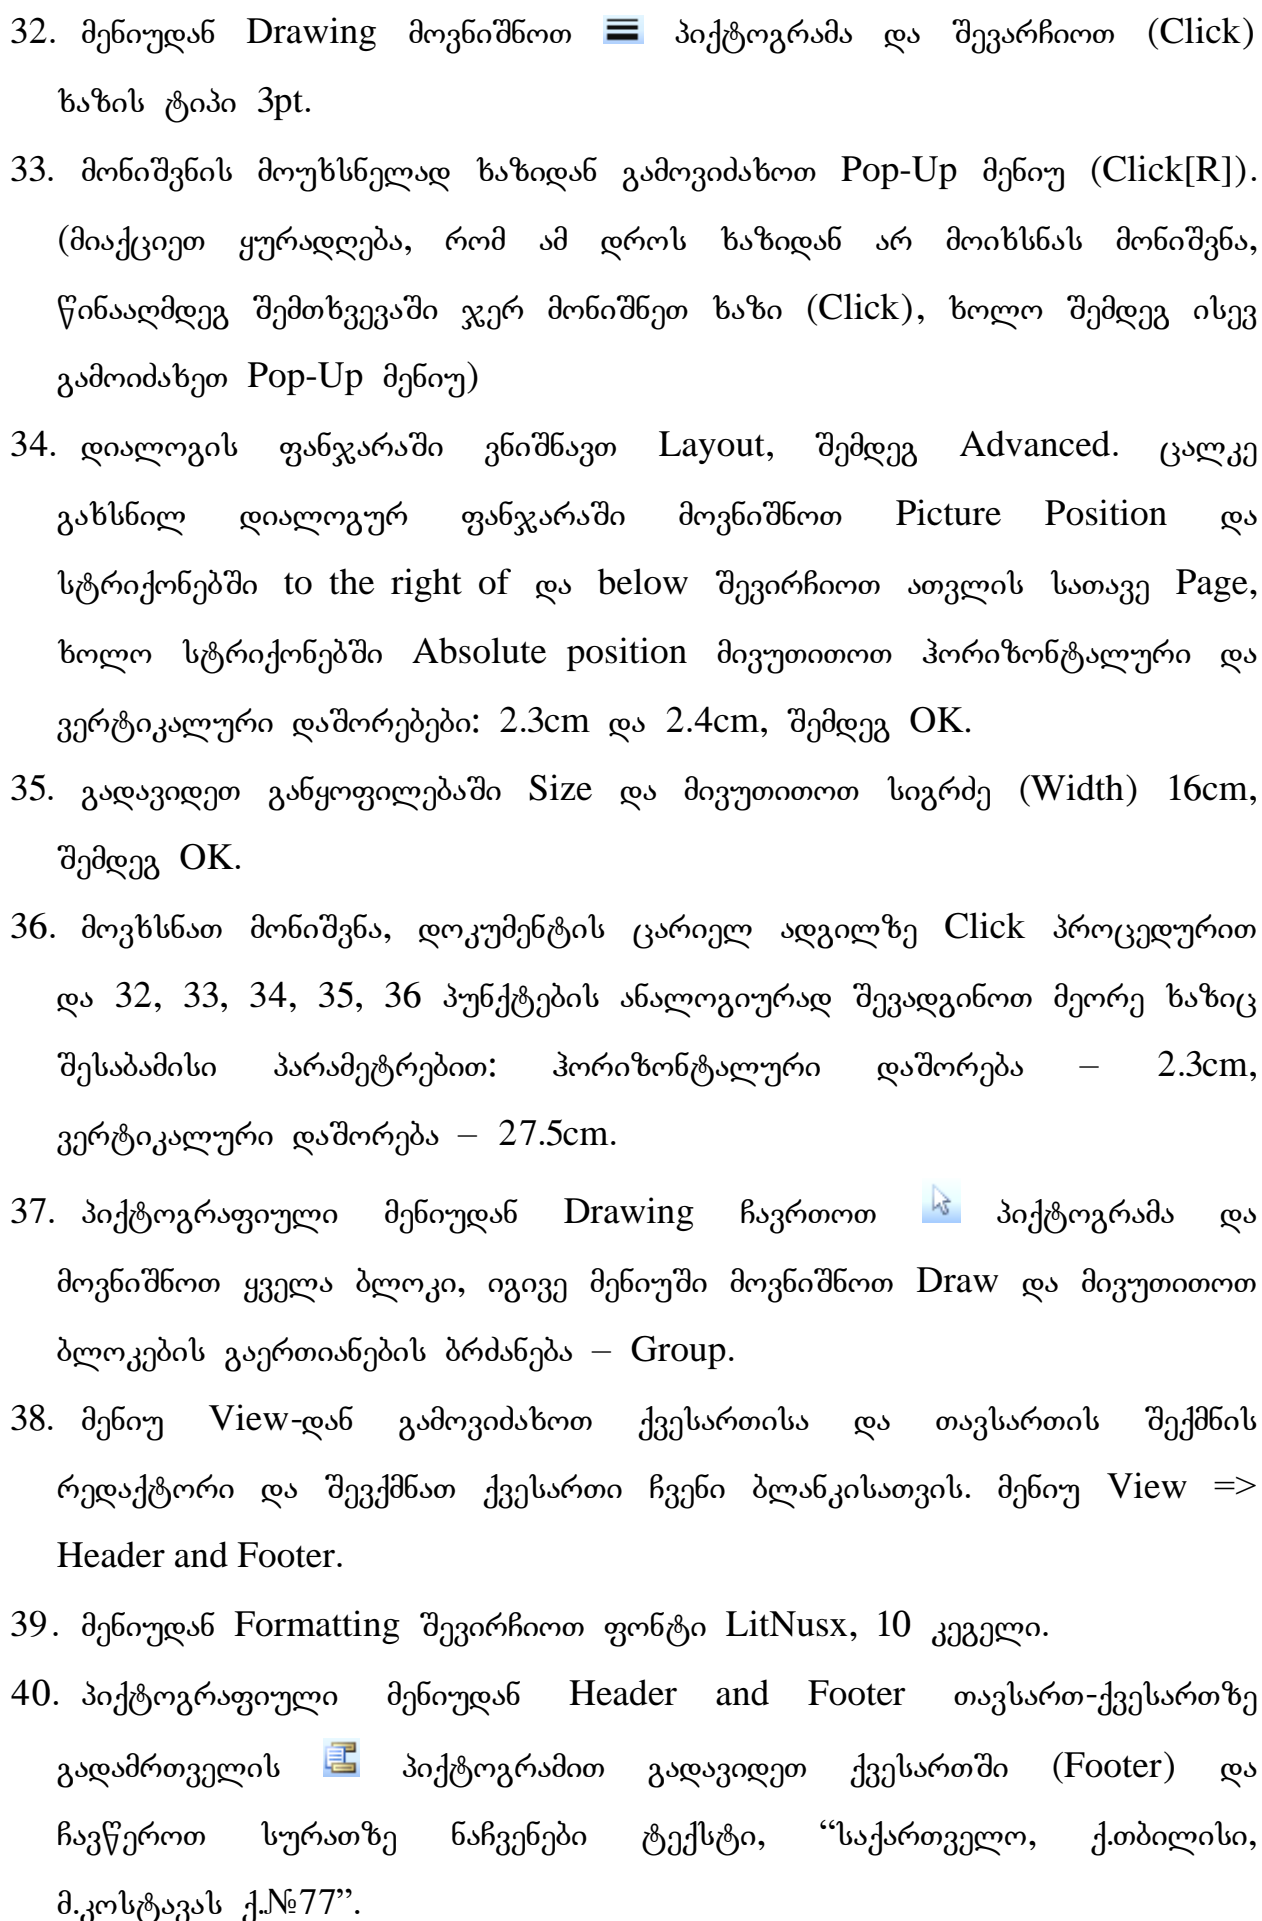 32. მენიუდან Drawing მოვნიშნოთ პიქტოგრამა და შევარჩიოთ (Click)
ხაზის ტიპი 3pt.
33. მონიშვნის მოუხსნელად ხაზიდან გამოვიძახოთ Pop-Up მენიუ (Click[R]).
(მიაქციეთ ყურადღება, რომ ამ დროს ხაზიდან არ მოიხსნას მონიშვნა,
წინააღმდეგ შემთხვევაში ჯერ მონიშნეთ ხაზი (Click), ხოლო შემდეგ ისევ
გამოიძახეთ Pop-Up მენიუ)
34. დიალოგის ფანჯარაში ვნიშნავთ Layout, შემდეგ Advanced. ცალკე
გახსნილ დიალოგურ ფანჯარაში მოვნიშნოთ Picture Position და
სტრიქონებში to the right of და below შევირჩიოთ ათვლის სათავე Page,
ხოლო სტრიქონებში Absolute position მივუთითოთ ჰორიზონტალური და
ვერტიკალური დაშორებები: 2.3cm და 2.4cm, შემდეგ OK.
35. გადავიდეთ განყოფილებაში Size და მივუთითოთ სიგრძე (Width) 16cm,
შემდეგ OK.
36. მოვხსნათ მონიშვნა, დოკუმენტის ცარიელ ადგილზე Click პროცედურით
და 32, 33, 34, 35, 36 პუნქტების ანალოგიურად შევადგინოთ მეორე ხაზიც
შესაბამისი პარამეტრებით: ჰორიზონტალური დაშორება – 2.3cm,
ვერტიკალური დაშორება – 27.5cm.
37. პიქტოგრაფიული მენიუდან Drawing ჩავრთოთ პიქტოგრამა და
მოვნიშნოთ ყველა ბლოკი, იგივე მენიუში მოვნიშნოთ Draw და მივუთითოთ
ბლოკების გაერთიანების ბრძანება – Group.
38. მენიუ View-დან გამოვიძახოთ ქვესართისა და თავსართის შექმნის
რედაქტორი და შევქმნათ ქვესართი ჩვენი ბლანკისათვის. მენიუ View =>
Header and Footer.
39. მენიუდან Formatting შევირჩიოთ ფონტი LitNusx, 10 კეგელი.
40. პიქტოგრაფიული მენიუდან Header and Footer თავსართ-ქვესართზე
გადამრთველის პიქტოგრამით გადავიდეთ ქვესართში (Footer) და
ჩავწეროთ სურათზე ნაჩვენები ტექსტი, “საქართველო, ქ.თბილისი,
მ.კოსტავას ქ.№77”.